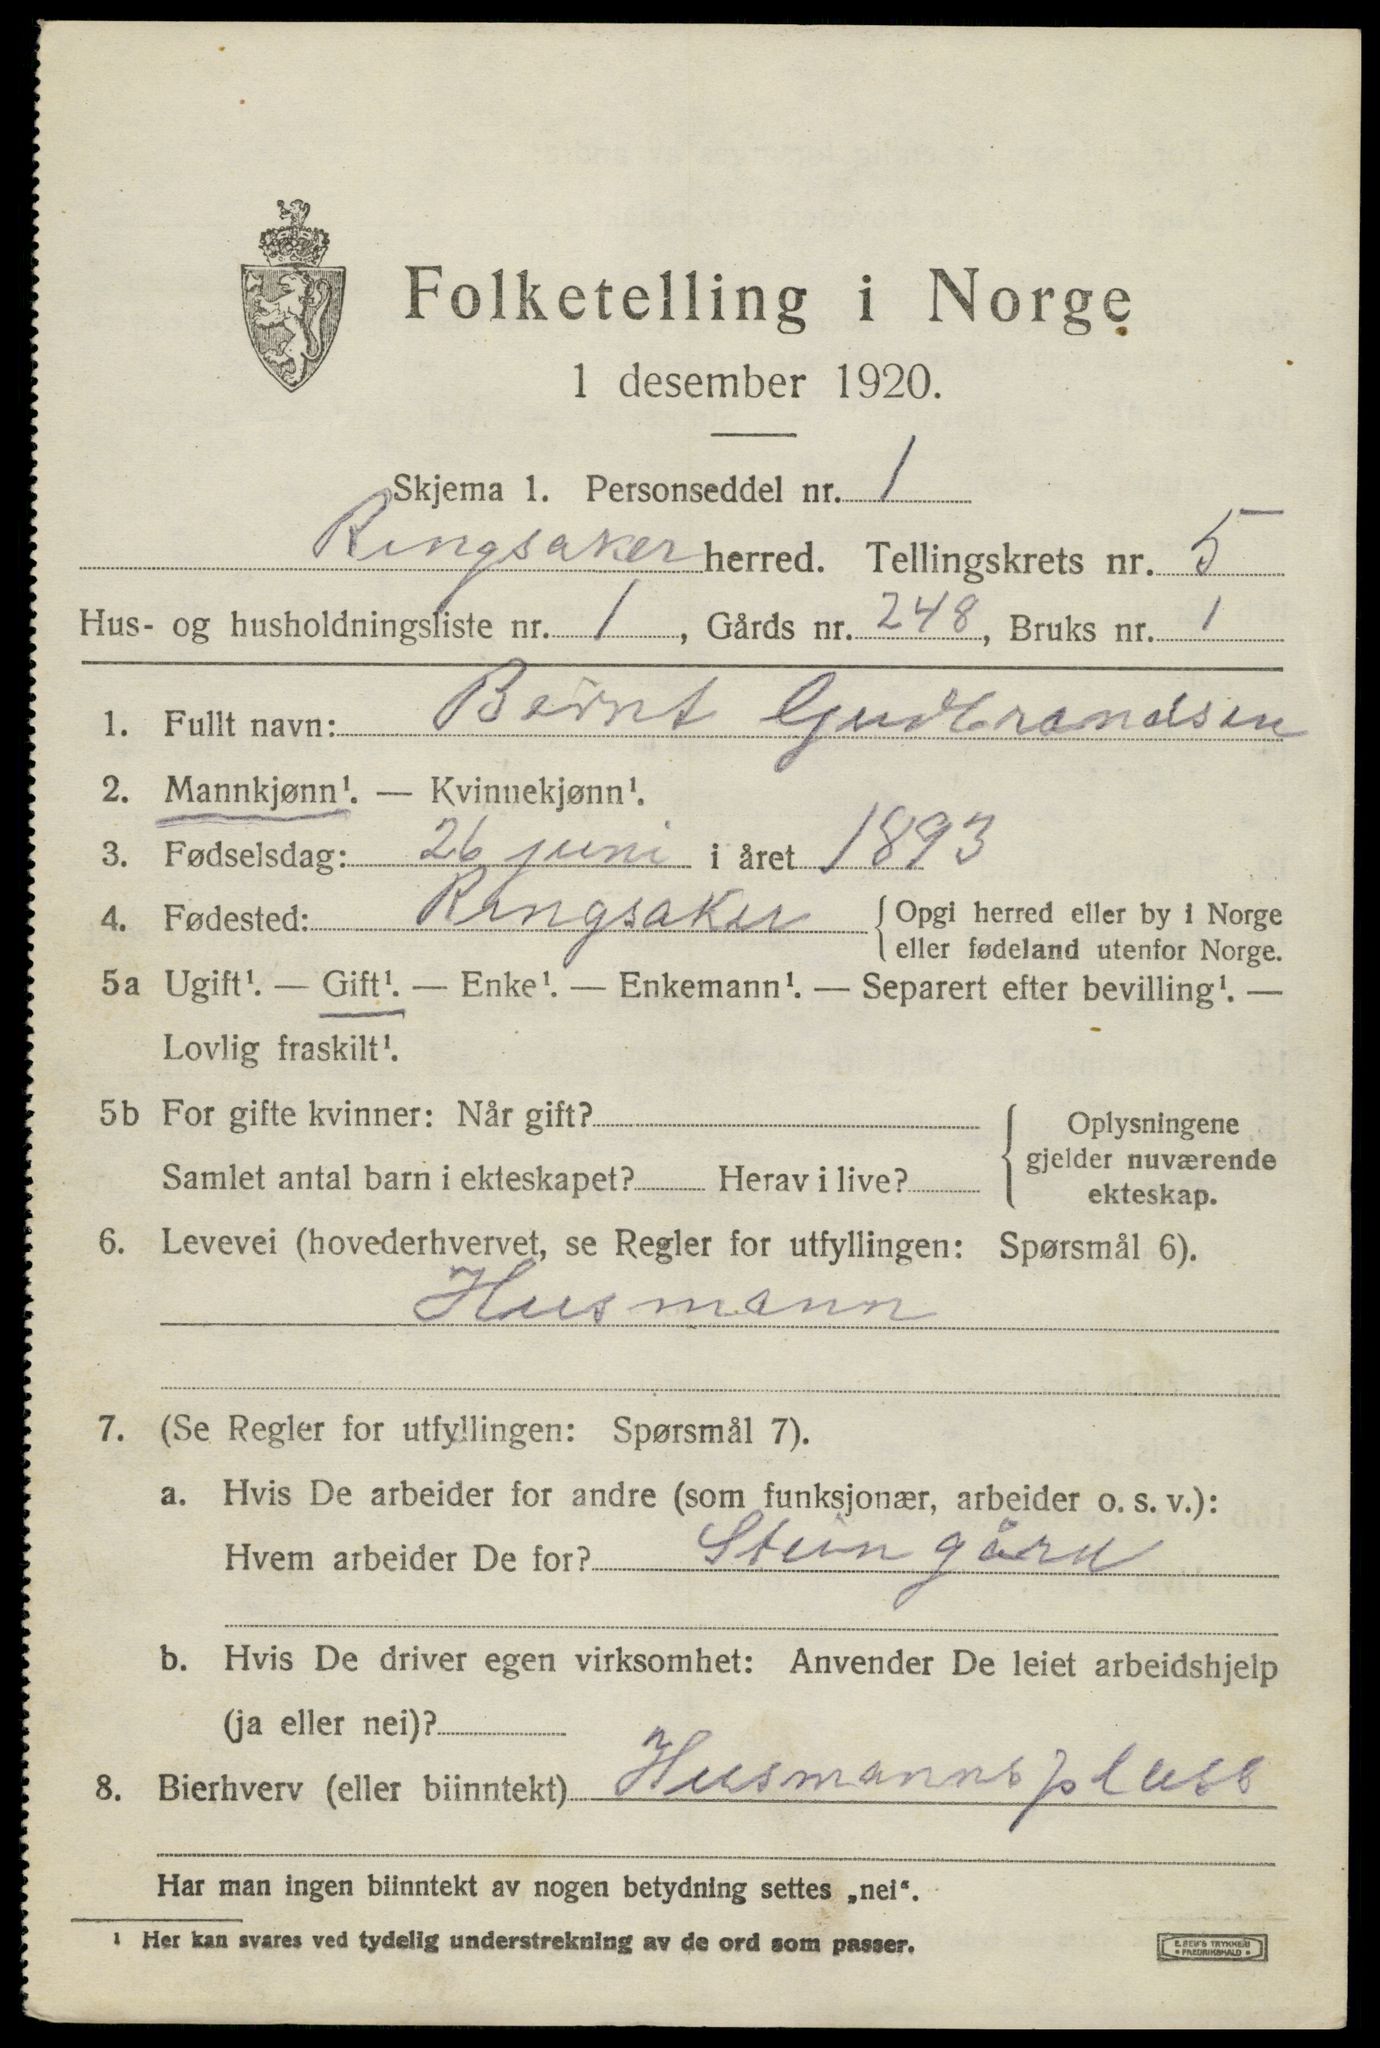 Folketelling i Norge
1 desember 1920.
Skjema 1. Personseddel nr. 1
Ringsaker herred. Tellingskrets nr. 5
Hus- og husholdningsliste nr. 1, Gårds nr. 248, Bruks nr. 1
1. Fullt navn: Bernt Gudbrandsen
2. Mannkjønn¹. — Kvinnekjønn¹.
3. Fødselsdag: 26 juni i året 1893
4. Fødested: Ringsaker {Opgi herred eller by i Norge
eller fødeland utenfor Norge.
5a Ugift¹. — Gift¹. — Enke¹. — Enkemann¹. — Separert efter bevilling¹. —
Lovlig fraskilt¹.
5b For gifte kvinner: Når gift? { Oplysningene
gjelder nuværende
Samlet antal barn i ekteskapet? Herav i live?
ekteskap.
6. Levevei (hovederhvervet, se Regler for utfyllingen: Spørsmål 6).
Husmann
7. (Se Regler for utfyllingen: Spørsmål 7).
a. Hvis De arbeider for andre (som funksjonær, arbeider o. s. v.):
Hvem arbeider De for? Stein gård
b. Hvis De driver egen virksomhet: Anvender De leiet arbeidshjelp
(ja eller nei)?
8. Bierhverv (eller biinntekt) Husmannsplass
Har man ingen biinntekt av nogen betydning settes „nei“.
¹ Her kan svares ved tydelig understrekning av de ord som passer.
E. SEM'S TRYKKERI
• FREDRIKSHALD •